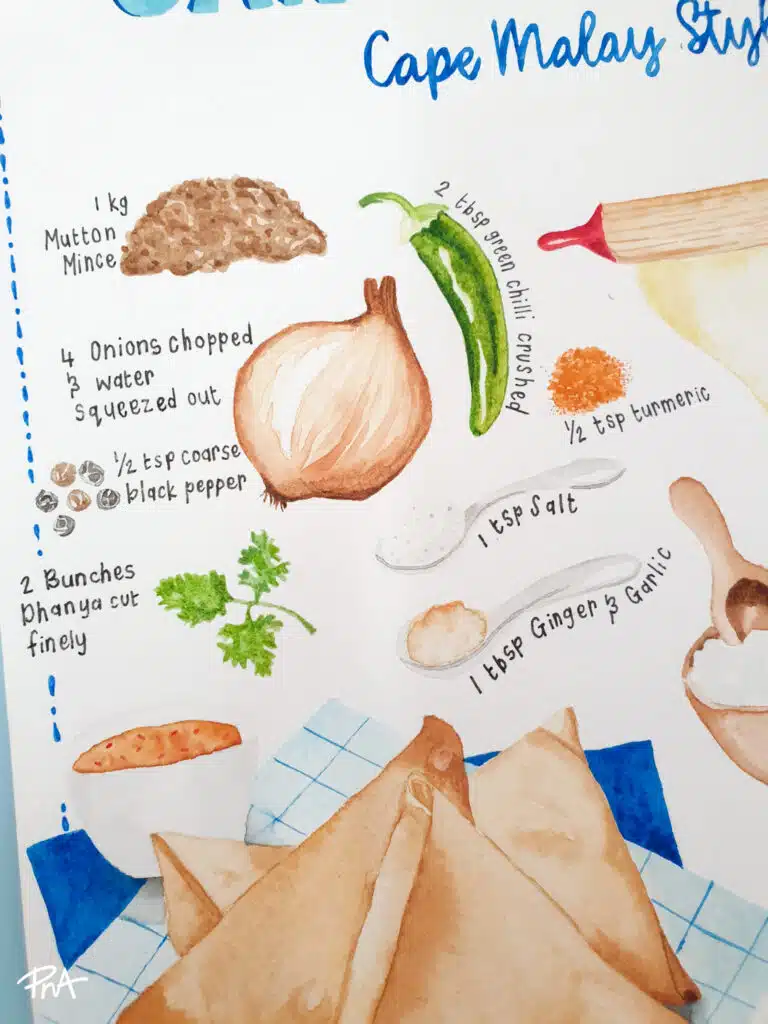 Cape Malay Style
1 kg
Mutton
Mince
2 tbsp green chilli crushed
4 Onions chopped
& water
squeezed out
1/2 tsp turmeric
1/2 tsp coarse
black pepper
1 tsp salt
2 Bunches
Dhanya cut
finely
1 tbsp Ginger & Garlic
PnA